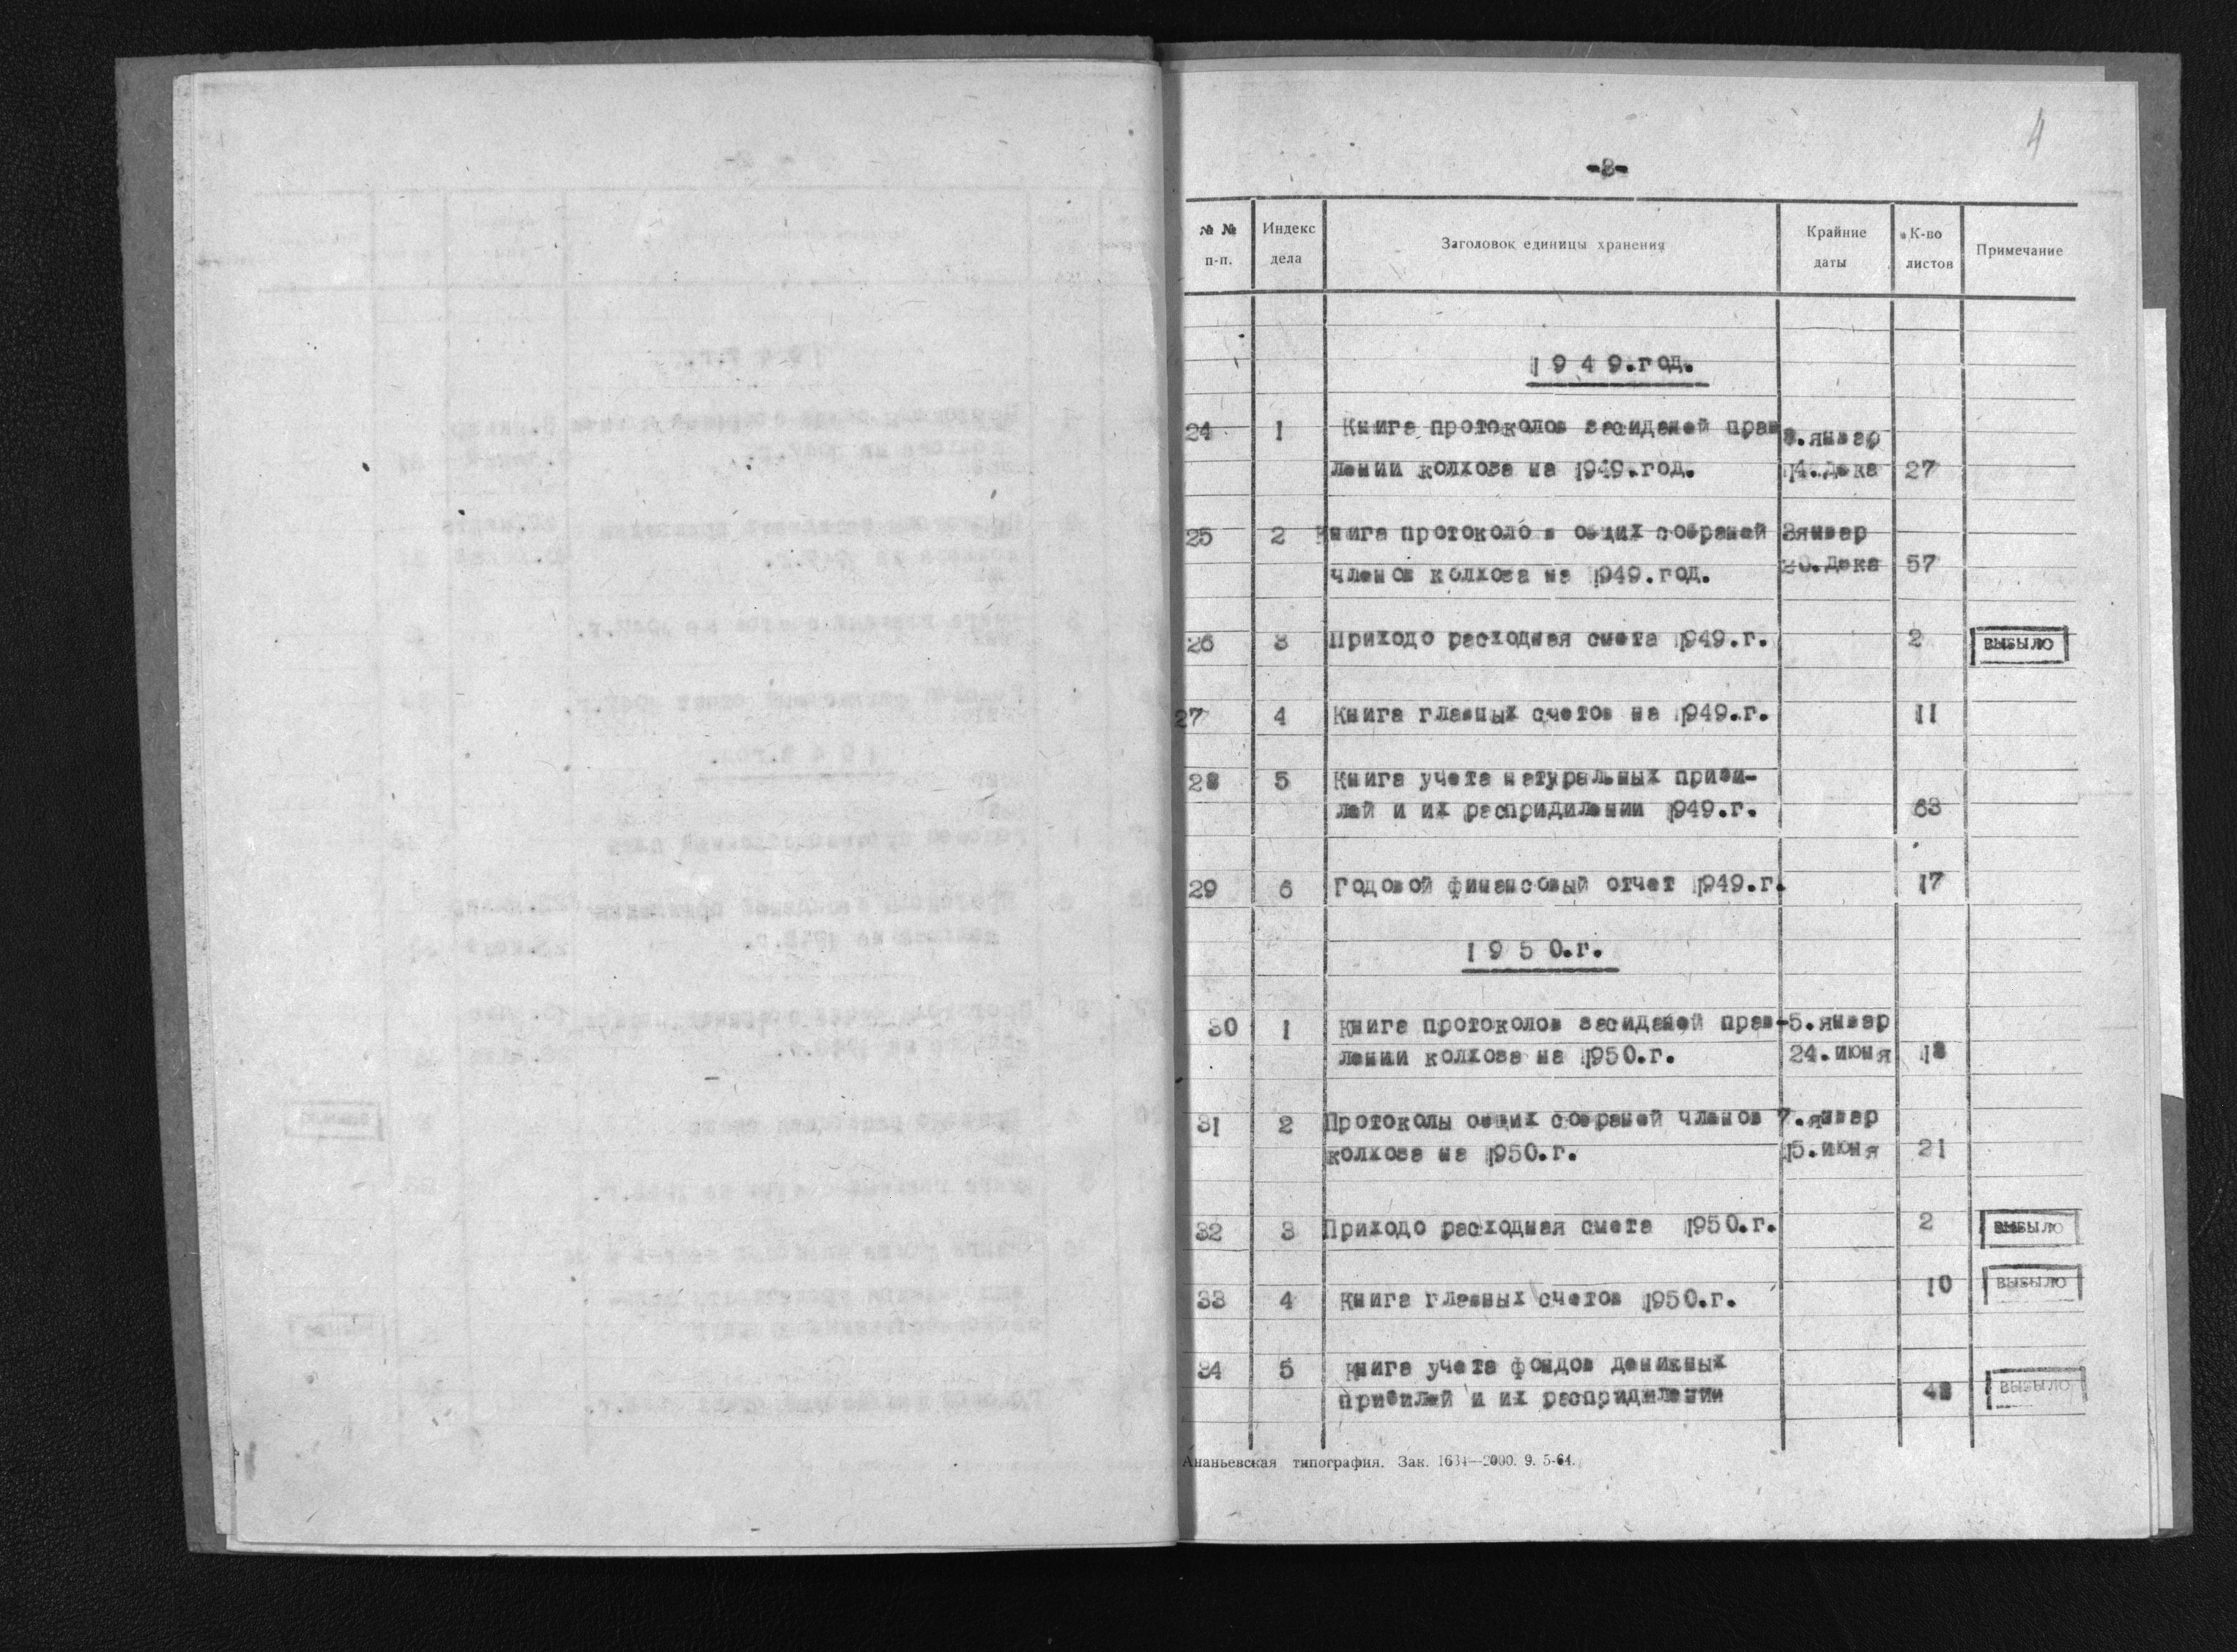 4
-3-
№ № п-п. Индекс дела Заголовок единицы хранения Крайние даты К-во листов Примечание
1949.год.
24 1 Книга протоколов засиданей прав 3.январ
лении колхоза на 1949.год. 14.дека 27
25 2 Книга протоколо в общих собраней 3январ
членов колхоза на 1949.год. 20.дека 57
26 3 Приходо расходная смета 1949.г. 2 ВЫБЫЛО
27 4 Книга главных счетов на 1949.г. 11
28 5 Книга учета натуральных приби-
лей и их распридилении 1949.г. 63
29 6 Годовой финансовый отчет 1949.г. 17
1950.г.
30 1 Книга протоколов засиданей прав- 5.январ
лении колхоза на 1950.г. 24.июня 18
31 2 Протоколы общих собраней членов 7.январ
колхоза на 1950.г. 15.июня 21
32 3 Приходо расходная смета 1950.г. 2 ВЫБЫЛО
33 4 Книга главных счетов 1950.г. 10 ВЫБЫЛО
34 5 Книга учета фондов денижных
прибилей и их распридилении 48 ВЫБЫЛО
Ананьевская типография. Зак. 1634—2000. 9. 5-64.